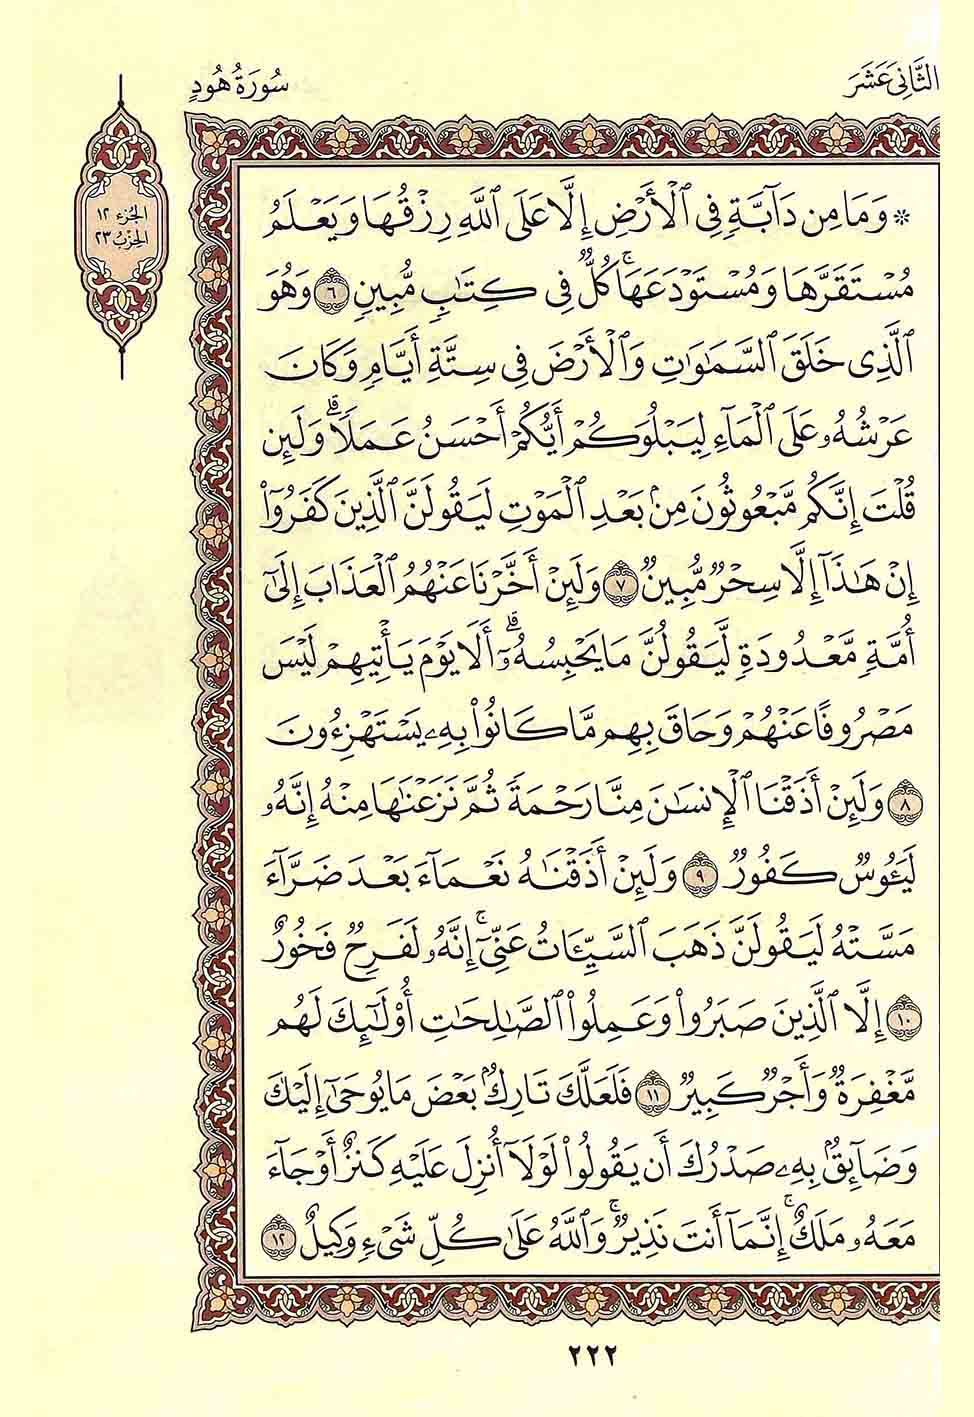 الثَّانِي عَشَرَ
سُورَةُ هُودٍ
الجُزء ١٢
الحِزبُ ٢٣
* وَمَا مِن دَآبَّةٍ فِي ٱلْأَرْضِ إِلَّا عَلَى ٱللَّهِ رِزْقُهَا وَيَعْلَمُ
مُسْتَقَرَّهَا وَمُسْتَوْدَعَهَاۚ كُلٌّ فِي كِتَٰبٍ مُّبِينٍ ٦ وَهُوَ
ٱلَّذِي خَلَقَ ٱلسَّمَٰوَٰتِ وَٱلْأَرْضَ فِي سِتَّةِ أَيَّامٍ وَكَانَ
عَرْشُهُۥ عَلَى ٱلْمَآءِ لِيَبْلُوَكُمْ أَيُّكُمْ أَحْسَنُ عَمَلًاۗ وَلَئِن
قُلْتَ إِنَّكُم مَّبْعُوثُونَ مِنۢ بَعْدِ ٱلْمَوْتِ لَيَقُولَنَّ ٱلَّذِينَ كَفَرُوٓا۟
إِنْ هَٰذَآ إِلَّا سِحْرٌ مُّبِينٌ ٧ وَلَئِنْ أَخَّرْنَا عَنْهُمُ ٱلْعَذَابَ إِلَىٰٓ
أُمَّةٍ مَّعْدُودَةٍ لَّيَقُولُنَّ مَا يَحْبِسُهُۥٓۗ أَلَا يَوْمَ يَأْتِيهِمْ لَيْسَ
مَصْرُوفًا عَنْهُمْ وَحَاقَ بِهِم مَّا كَانُوا۟ بِهِۦ يَسْتَهْزِءُونَ
٨ وَلَئِنْ أَذَقْنَا ٱلْإِنسَٰنَ مِنَّا رَحْمَةً ثُمَّ نَزَعْنَٰهَا مِنْهُ إِنَّهُۥ
لَيَـُٔوسٌ كَفُورٌ ٩ وَلَئِنْ أَذَقْنَٰهُ نَعْمَآءَ بَعْدَ ضَرَّآءَ
مَسَّتْهُ لَيَقُولَنَّ ذَهَبَ ٱلسَّيِّـَٔاتُ عَنِّيٓۚ إِنَّهُۥ لَفَرِحٌ فَخُورٌ
١٠ إِلَّا ٱلَّذِينَ صَبَرُوا۟ وَعَمِلُوا۟ ٱلصَّٰلِحَٰتِ أُو۟لَٰٓئِكَ لَهُم
مَّغْفِرَةٌ وَأَجْرٌ كَبِيرٌ ١١ فَلَعَلَّكَ تَارِكٌۢ بَعْضَ مَا يُوحَىٰٓ إِلَيْكَ
وَضَآئِقٌۢ بِهِۦ صَدْرُكَ أَن يَقُولُوا۟ لَوْلَآ أُنزِلَ عَلَيْهِ كَنزٌ أَوْ جَآءَ
مَعَهُۥ مَلَكٌۚ إِنَّمَآ أَنتَ نَذِيرٌۚ وَٱللَّهُ عَلَىٰ كُلِّ شَيْءٍ وَكِيلٌ ١٢
٢٢٢